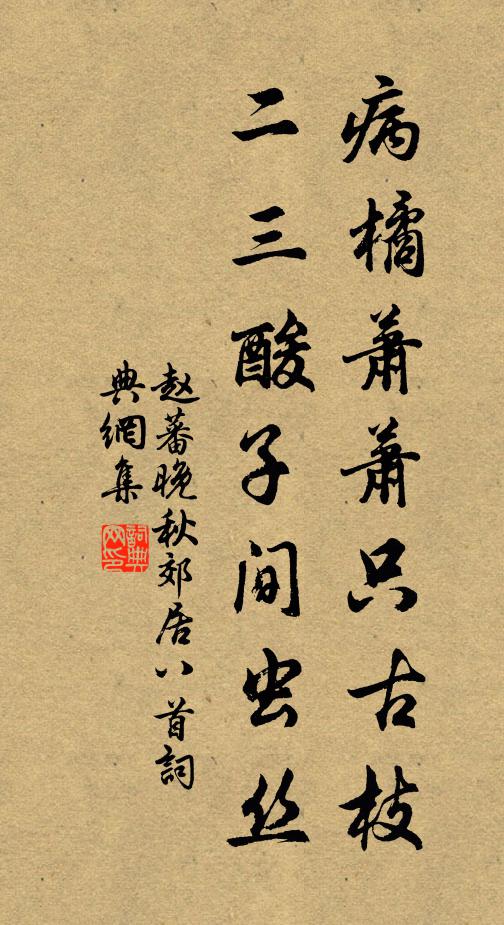 病橘萧萧只古枝
二三酸子间虫丝
赵蕃晚秋郊居八首詞
典網集
詞典网印